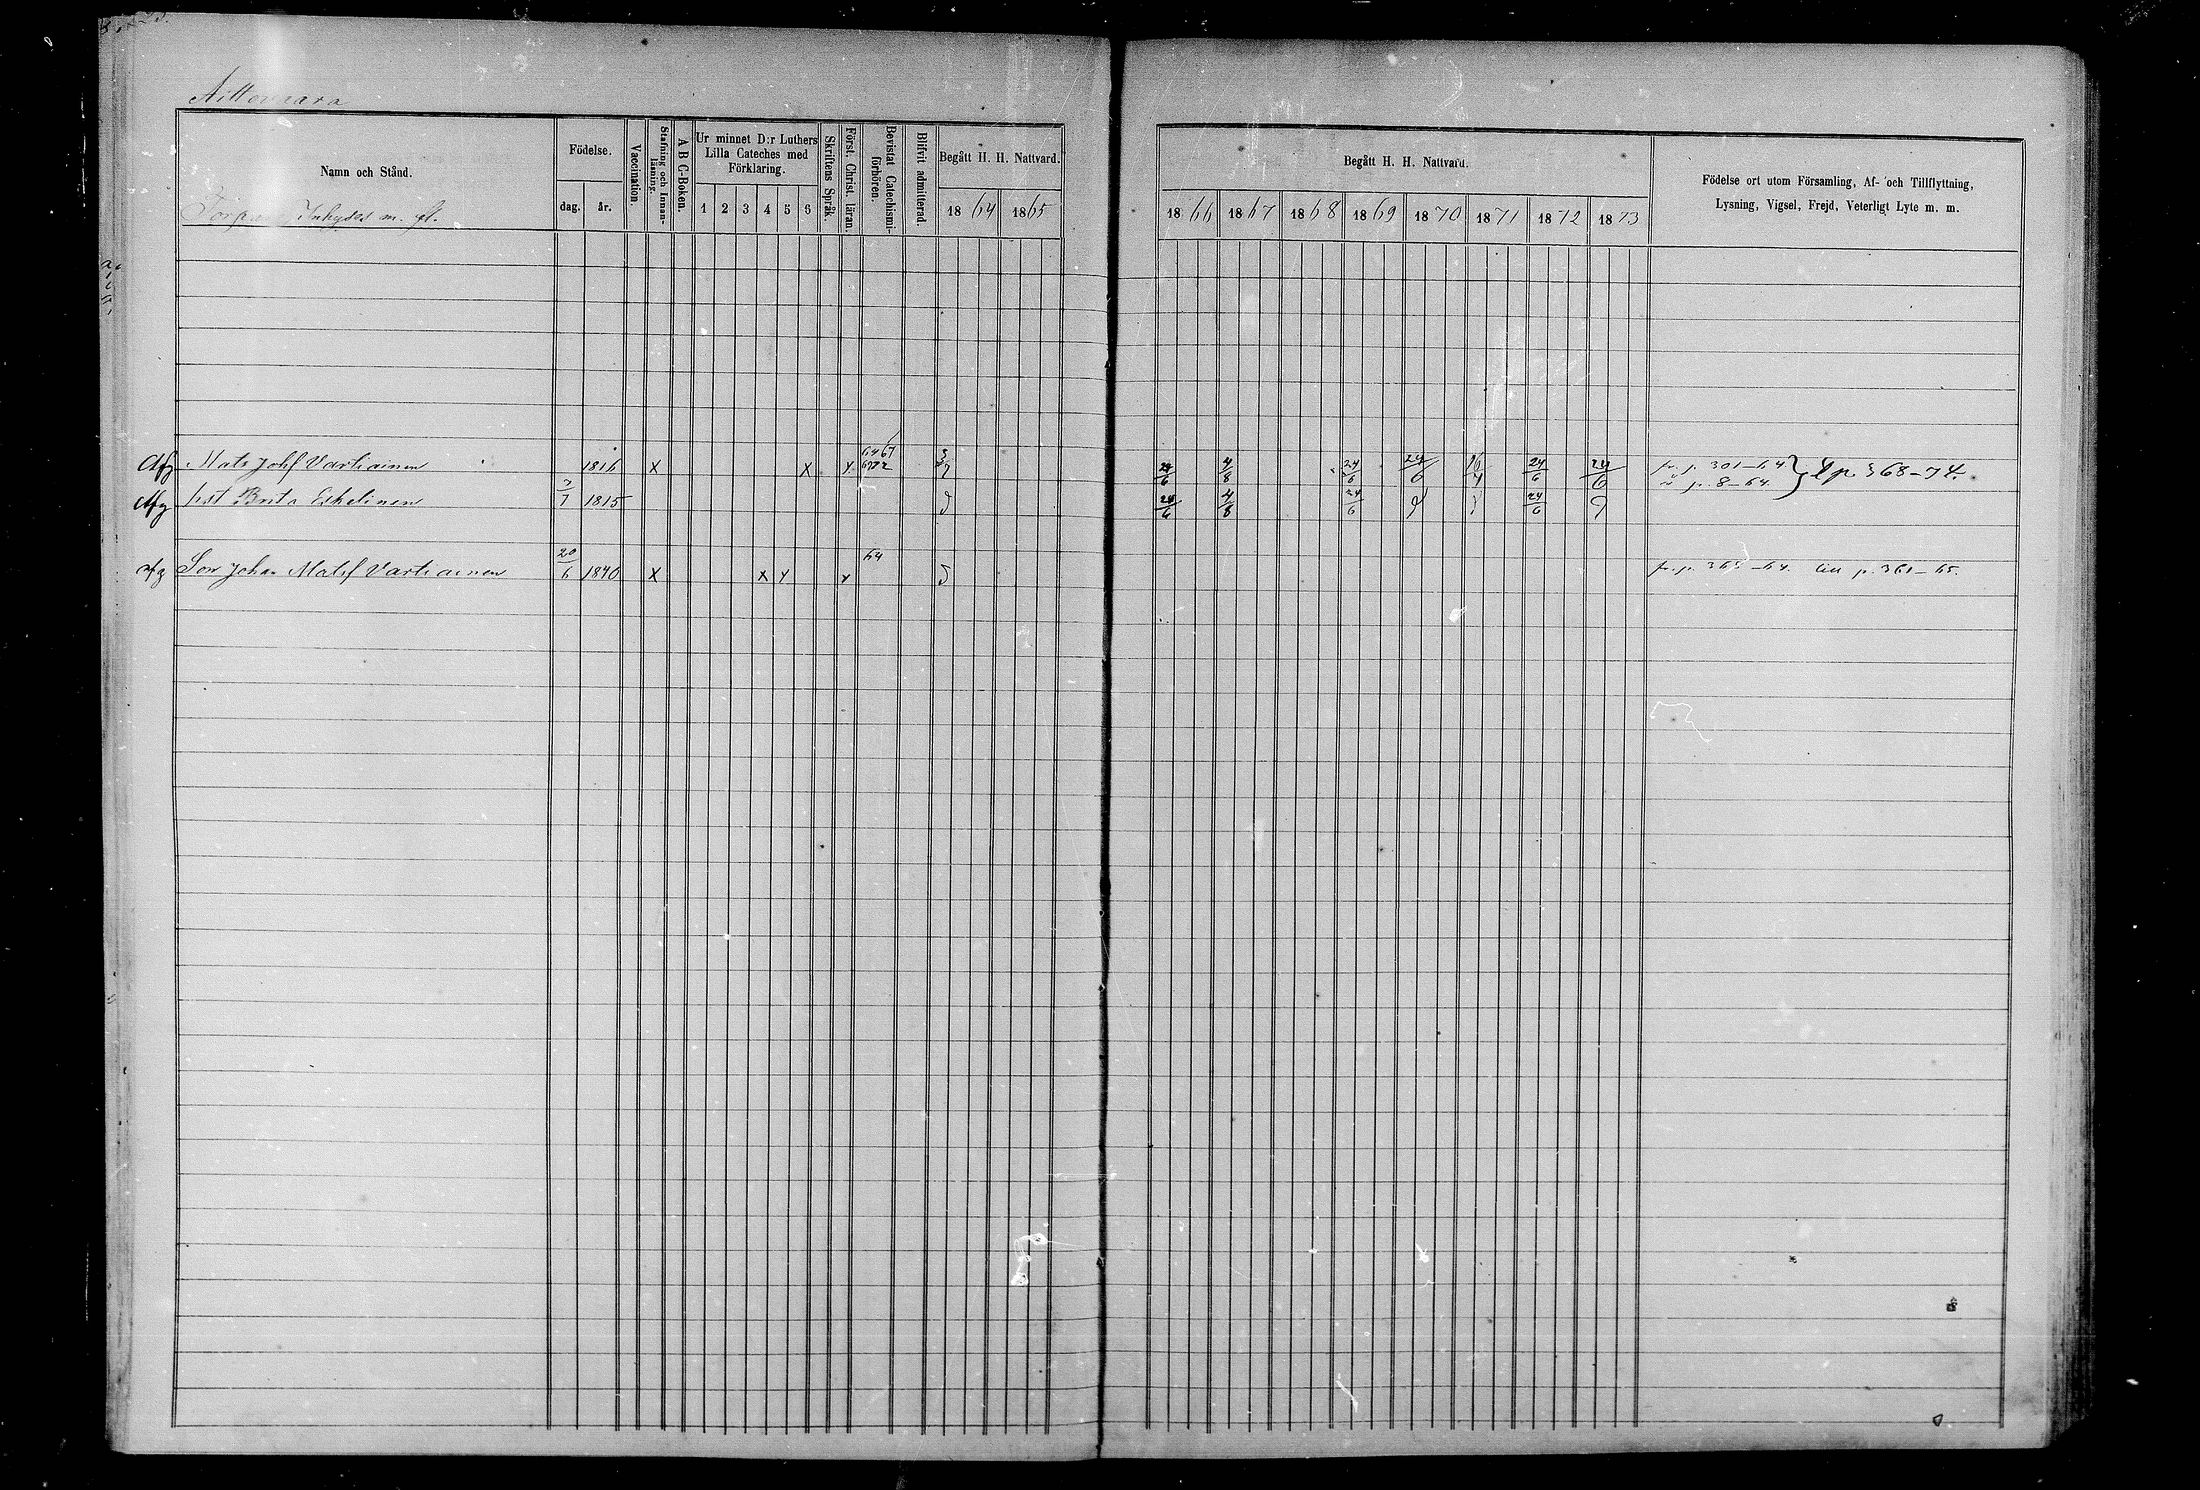 Aittovaara
Namn och Stånd.
Födelse.
dag.
år.
Vaccination.
Stafning och Innanläsning.
A B C-Boken.
Ur minnet D:r Luthers
Lilla Cateches med
Förklaring.
1 2 3 4 5 6
Skriftens Språk.
Först. Christ. läran.
Bevistat Catechismiförhören.
Blifvit admitterad.
Begått H. H. Nattvard.
1864 1865
Inhyses m. fl.
Begått H. H. Nattvard.
1866 1867 1868 1869 1870 1871 1872 1873
Födelse ort utom Församling, Af- och Tillflyttning,
Lysning, Vigsel, Frejd, Veterligt Lyte m. m.
Afg Mats Johsf Vartiainen 1816 x x x 24/6 4/8 24/6 24/6 24/6 24/6 fr. p. 301-64 p. 368-74.
Afg hst Brita Eskelinen 7/7 1815 24/6 4/8 24/6 24/6 p. 8-64.
afg Son Johan Matsf Vartiainen 20/6 1840 x x x x 64 fr. p. 365-64. till p. 361-65.